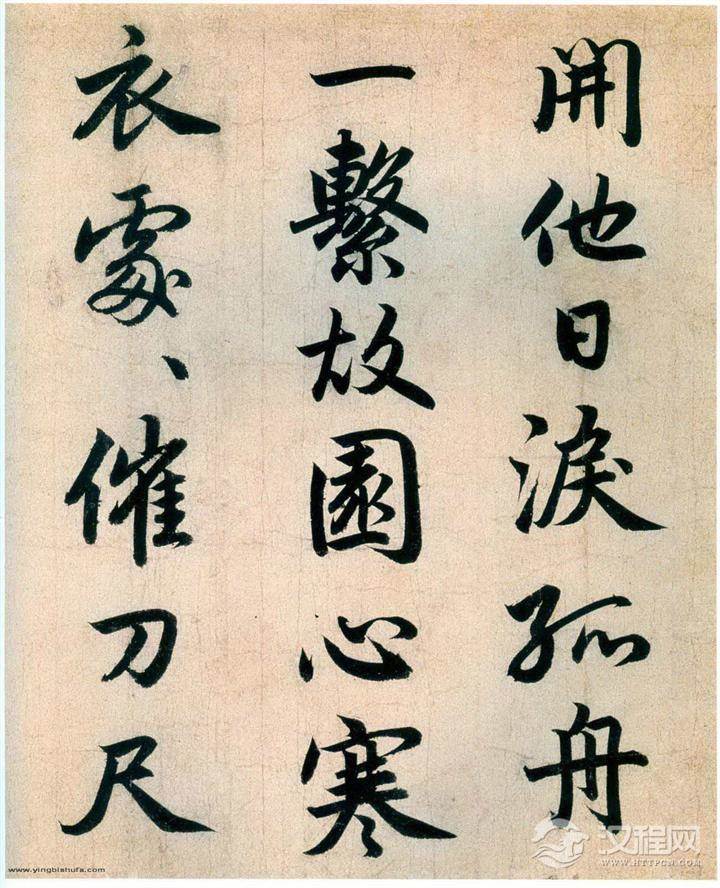 開他日淚孤舟
一繫故園心寒
衣處、催刀尺
www.yingbishufa.com
汉程网
WWW.HTTPCN.COM